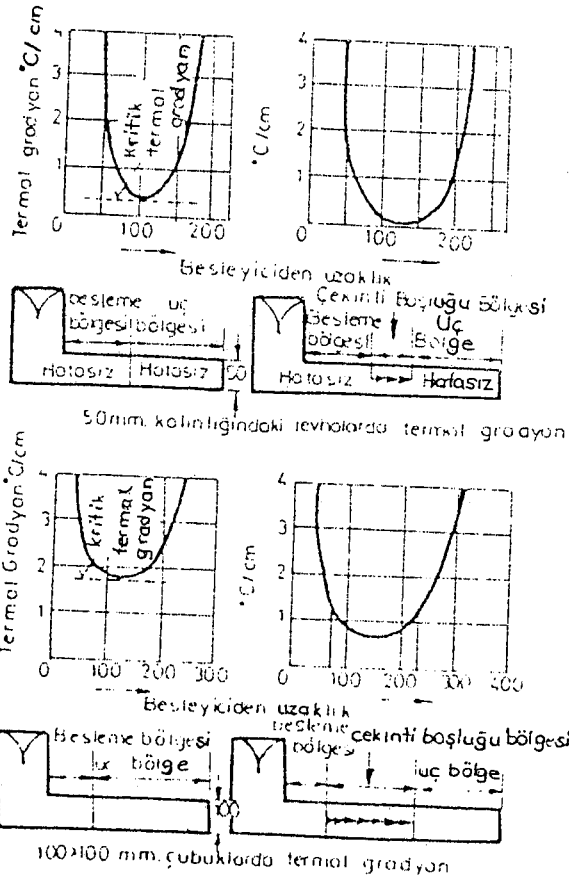 Termal gradyan °C/cm
4
3
2
1
0
100
200
Kritik termal gradyan
°C/cm
4
3
2
1
0
100
200
Besleyiciden uzaklık
Besleme bölgesi
uç bölgesi
Hatasız
Hatasız
50
Çekinti Boşluğu Bölgesi
Besleme bölgesi
Uç Bölge
Hatasız
Hatasız
50mm. kalınlığındaki levhalarda termal gradyan
Termal Gradyan °C/cm
4
3
2
1
0
100
200
300
kritik termal gradyan
°C/cm
4
3
2
1
0
100
200
300
400
Besleyiciden uzaklık
Besleme bölgesi
uç bölge
100
besleme bölgesi
çekinti boşluğu bölgesi
uç bölge
100×100 mm. çubuklarda termal gradyan